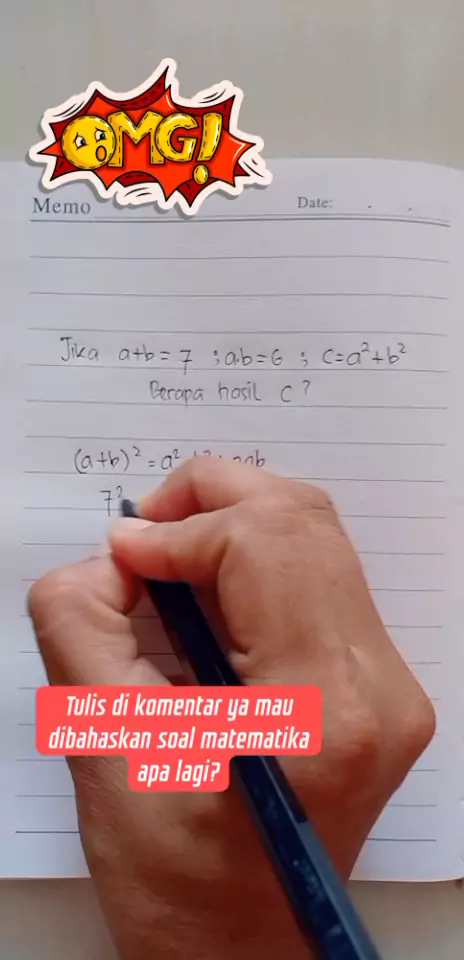 OMG!
Memo
Date: . .
Jika a+b=7 ; a.b=6 ; C=a²+b²
Berapa hasil C?
(a+b)²=a²
7²
Tulis di komentar ya mau
dibahaskan soal matematika
apa lagi?